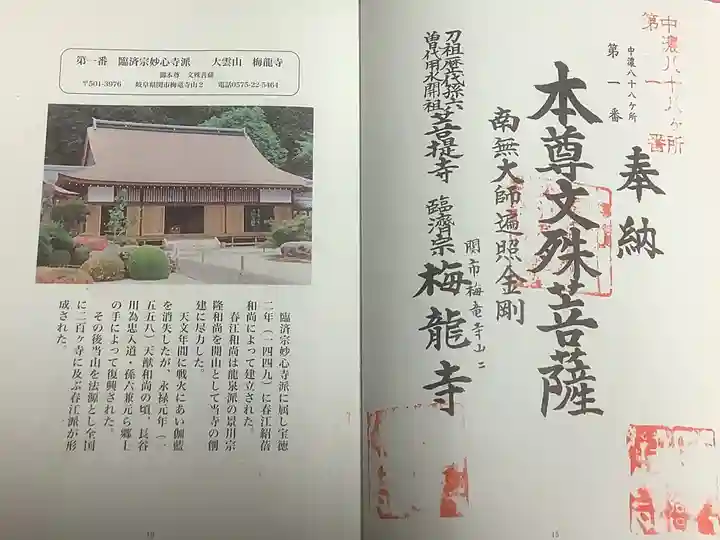 第一番　臨済宗妙心寺派　大雲山　梅龍寺
御本尊　文殊菩薩
〒501-3976　岐阜県関市梅竜寺山2　電話0575-22-5464
臨済宗妙心寺派に属し宝徳
二年（一四四九）に春江紹蓓
和尚によって建立された。
春江和尚は龍泉派の景川宗
隆和尚を開山として当寺の創
建に尽力した。
天文年間に戦火にあい伽藍
を消失したが、永禄元年（一
五五八）天猷和尚の頃、長谷
川為忠入道・孫六兼元ら郷土
の手によって復興された。
その後当山を法源とし全国
に二百ヶ寺に及ぶ春江派が形
成された。
中濃八十八ヶ所
第一番
中濃八十八ヶ所
第一番
奉納
本尊文殊菩薩
南無大師遍照金剛
関市梅竜寺山二
刀祖歴代孫六
曽代用水開祖
菩提寺　臨濟宗　梅龍寺
15